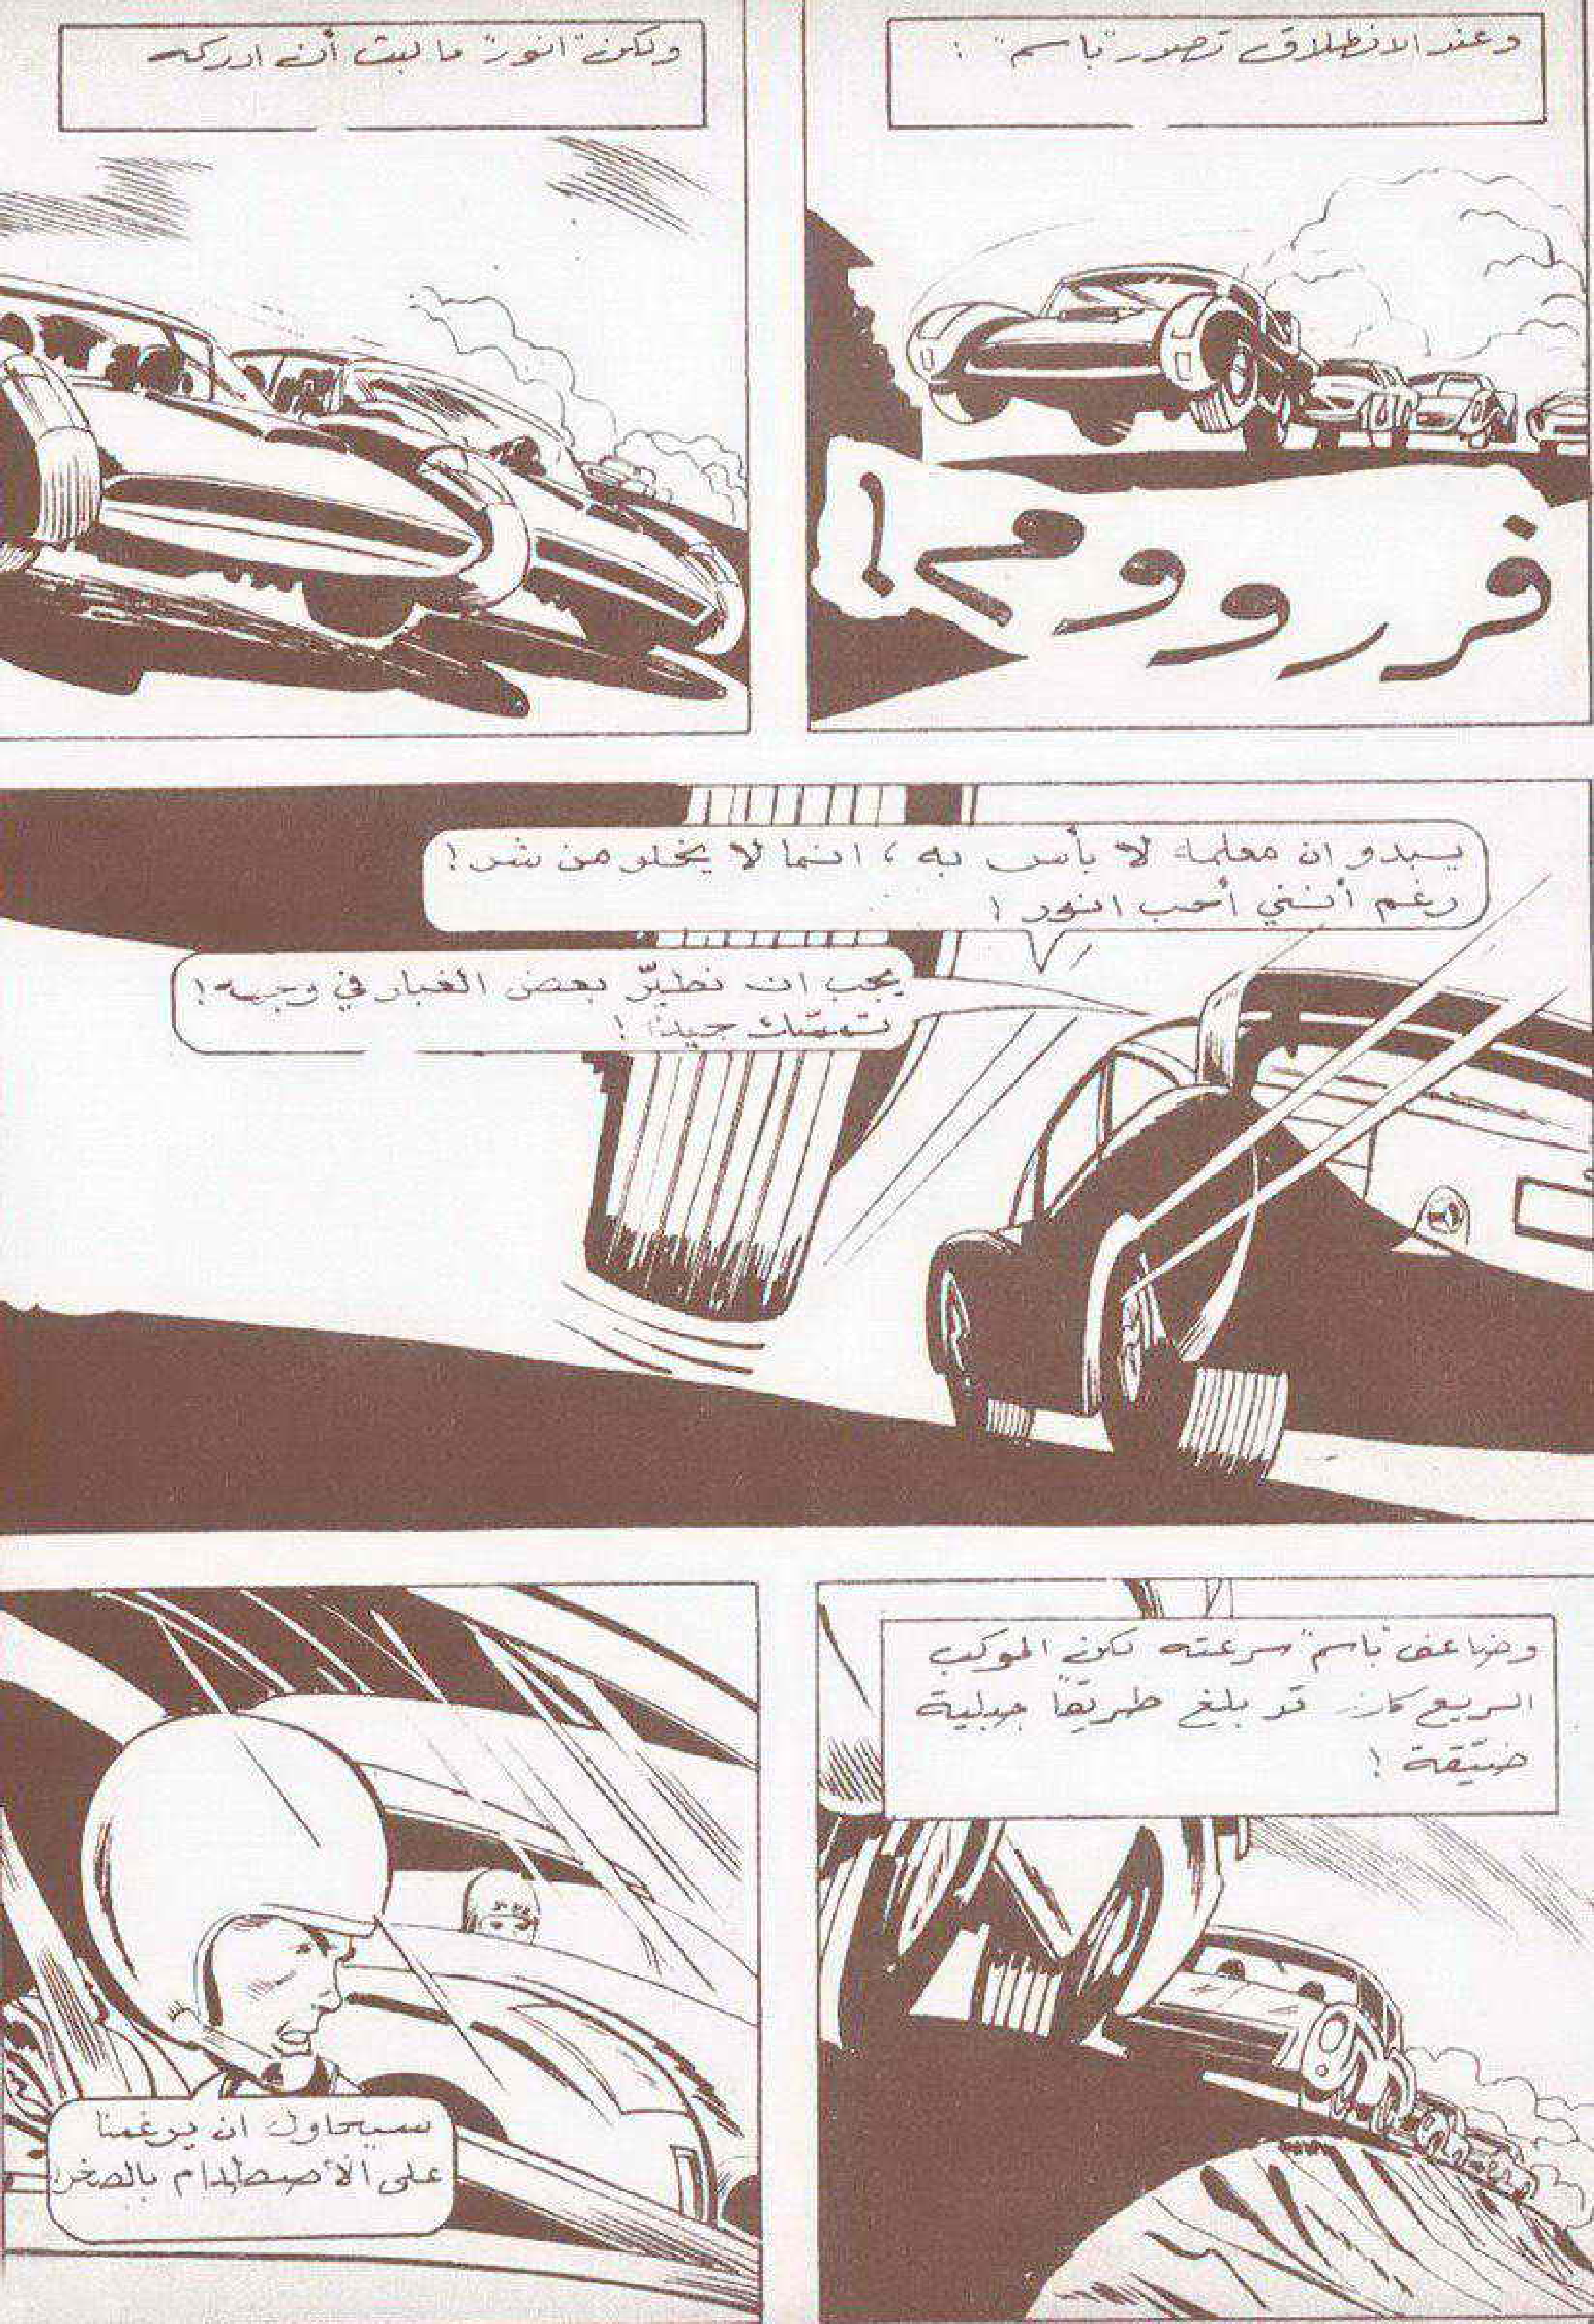 وعند الانطلاق تصدر "باسم" :
فررووم!
ولكن "انور" ما لبث أن ادركه
يبدو ان معلمه لا بأس به ، انما لا يخلو من شر !
رغم أنني أحب انور !
يجب ان نطيّر بعض الغبار في وجهه !
تمسّك جيدًا !
وضاعف "باسم" سرعته لكن الموكب
السريع كان قد بلغ طريقاً جبلية
ضيّقة !
سيحاول ان يرغمنا
على الأصطدام بالصخر